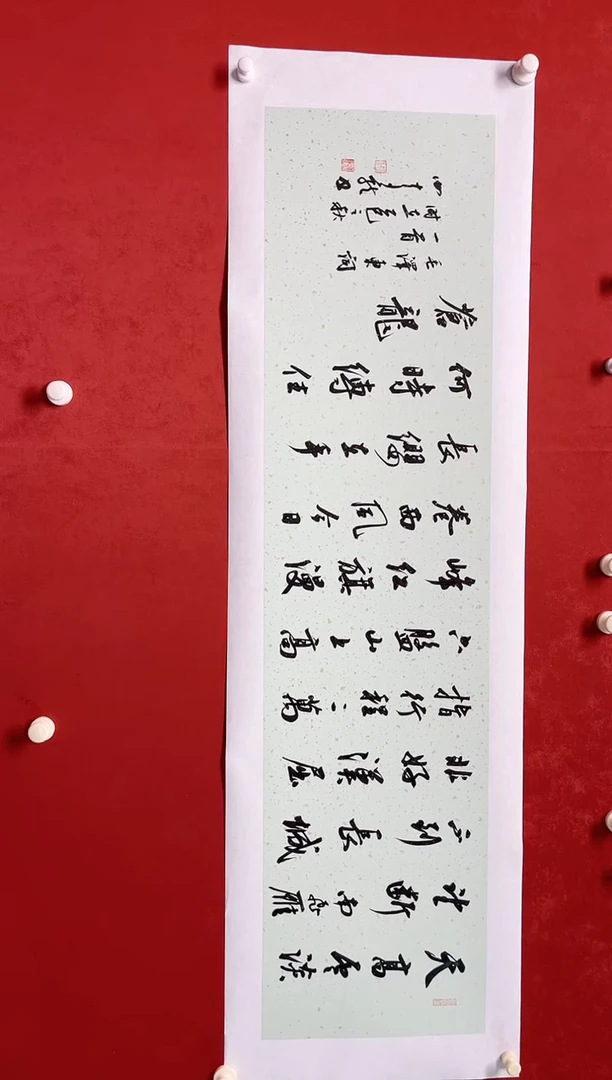 天高雲淡
望斷南飛雁
不到長城
非好漢屈
指行程二萬
六盤山上高
峰紅旗漫
卷西風今日
長纓在手
何時縛住
蒼龍
毛澤東詞
一首
时在乙巳秋